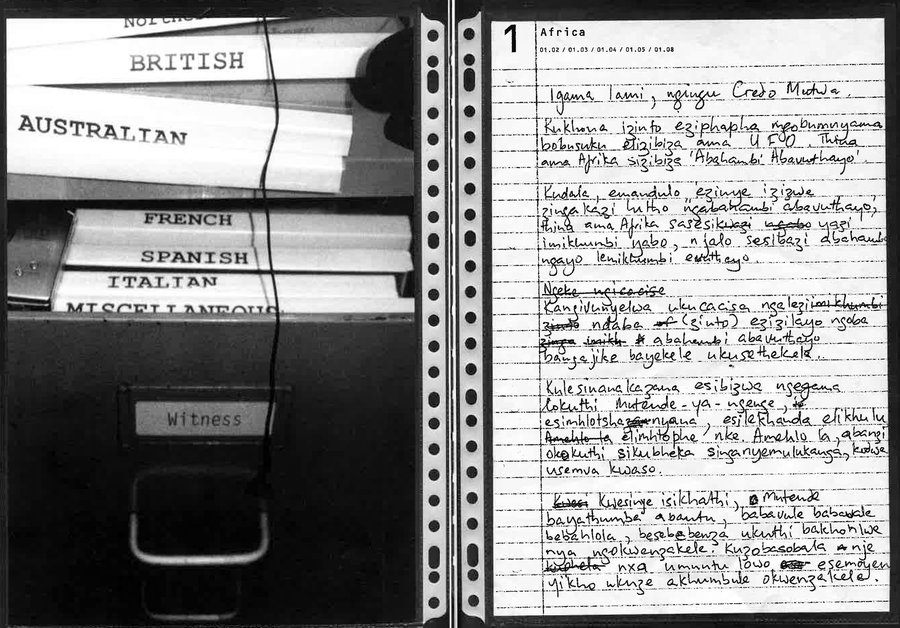 BRITISH
AUSTRALIAN
FRENCH
SPANISH
ITALIAN
MISCELLANEOUS
Witness
1
Africa
01.02 / 01.03 / 01.04 / 01.05 / 01.08
Igama lami, ngingu Credo Mutwa.
Kukhona izinto eziphapha ngobumnyama
bobusuku elizibiza ama UFO. Thina
ama Afrika sizibiza 'Abahambi Abavuthayo'.
Kudala, emandulo ezinye izizwe
zingakazi lutho "ngabahambi abavuthayo',
thina ama Afrika sasesikwazi ngabo yazi
imikhumbi yabo, njalo sesibazi abahamba
ngayo lemikhumbi evuthayo.
Ngeke ngicacise
Kangivunyelwa ukucacisa ngalezi
ndaba of (zinto) ezizilayo ngoba
abahambi abavuthayo
bangajike bayekele ukusethekela.
Kulesinanakazana esibizwa ngegama
lokuthi Mutende-ya-ngenge,
esimhlotshazanyana, esilekhanda elikhulu
Amehlo la elimhlophe nke. Amehlo la, abanzi
okokuthi sikubheka singanyemulukanga, kodwa
usemva kwaso.
Kwesinye isikhathi, Mutende
bayathumba abantu, babavule babavale
bebahlola, besebebenza ukuthi bakhohlwe
nya ngokwenzakele. Kuzobasobala nje
nxa umuntu lowo esemoyeni
yikho ukuze akhumbule okwenzakele.